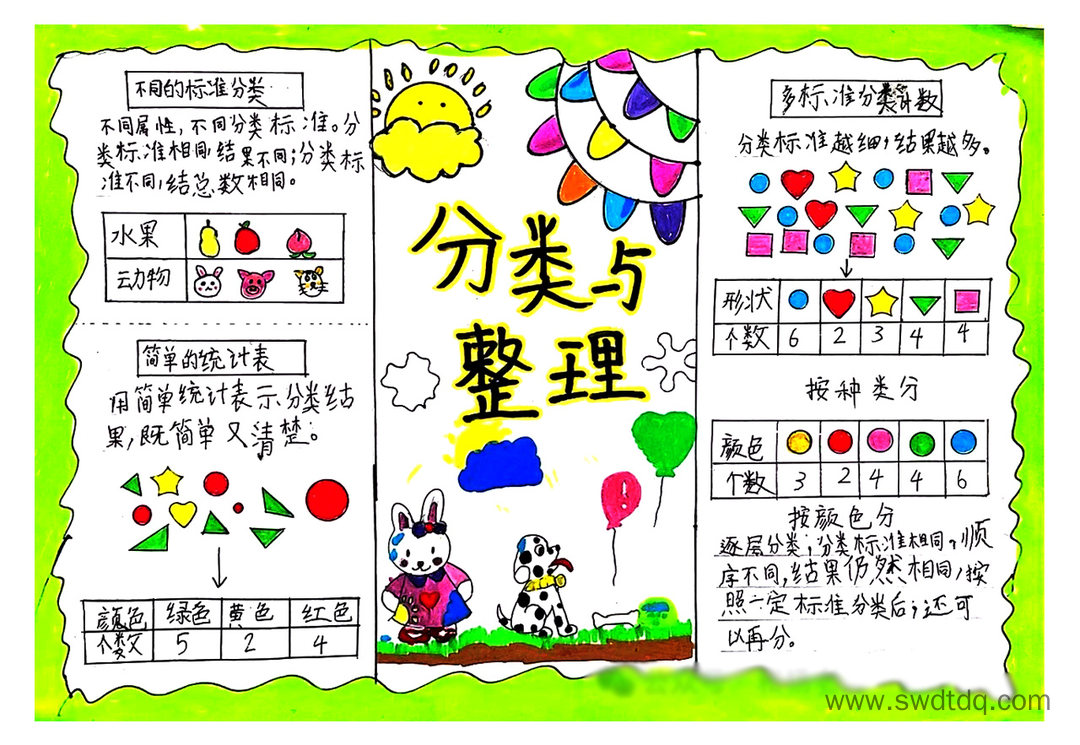 不同的标准分类
不同属性,不同分类标准。分
类标准相同,结果不同;分类标
准不同,结总数相同。
水果
动物
简单的统计表
用简单统计表示分类结
果,既简单又清楚。
颜色 绿色 黄色 红色
个数 5 2 4
分类与
整理
多标准分类算数
分类标准越细,结果越多。
形状
个数 6 2 3 4 4
按种类分
颜色
个数 3 2 4 4 6
按颜色分
逐层分类;分类标准相同,顺
序不同,结果仍然相同,按
照一定标准分类后,还可
以再分。
www.swdtdq.com